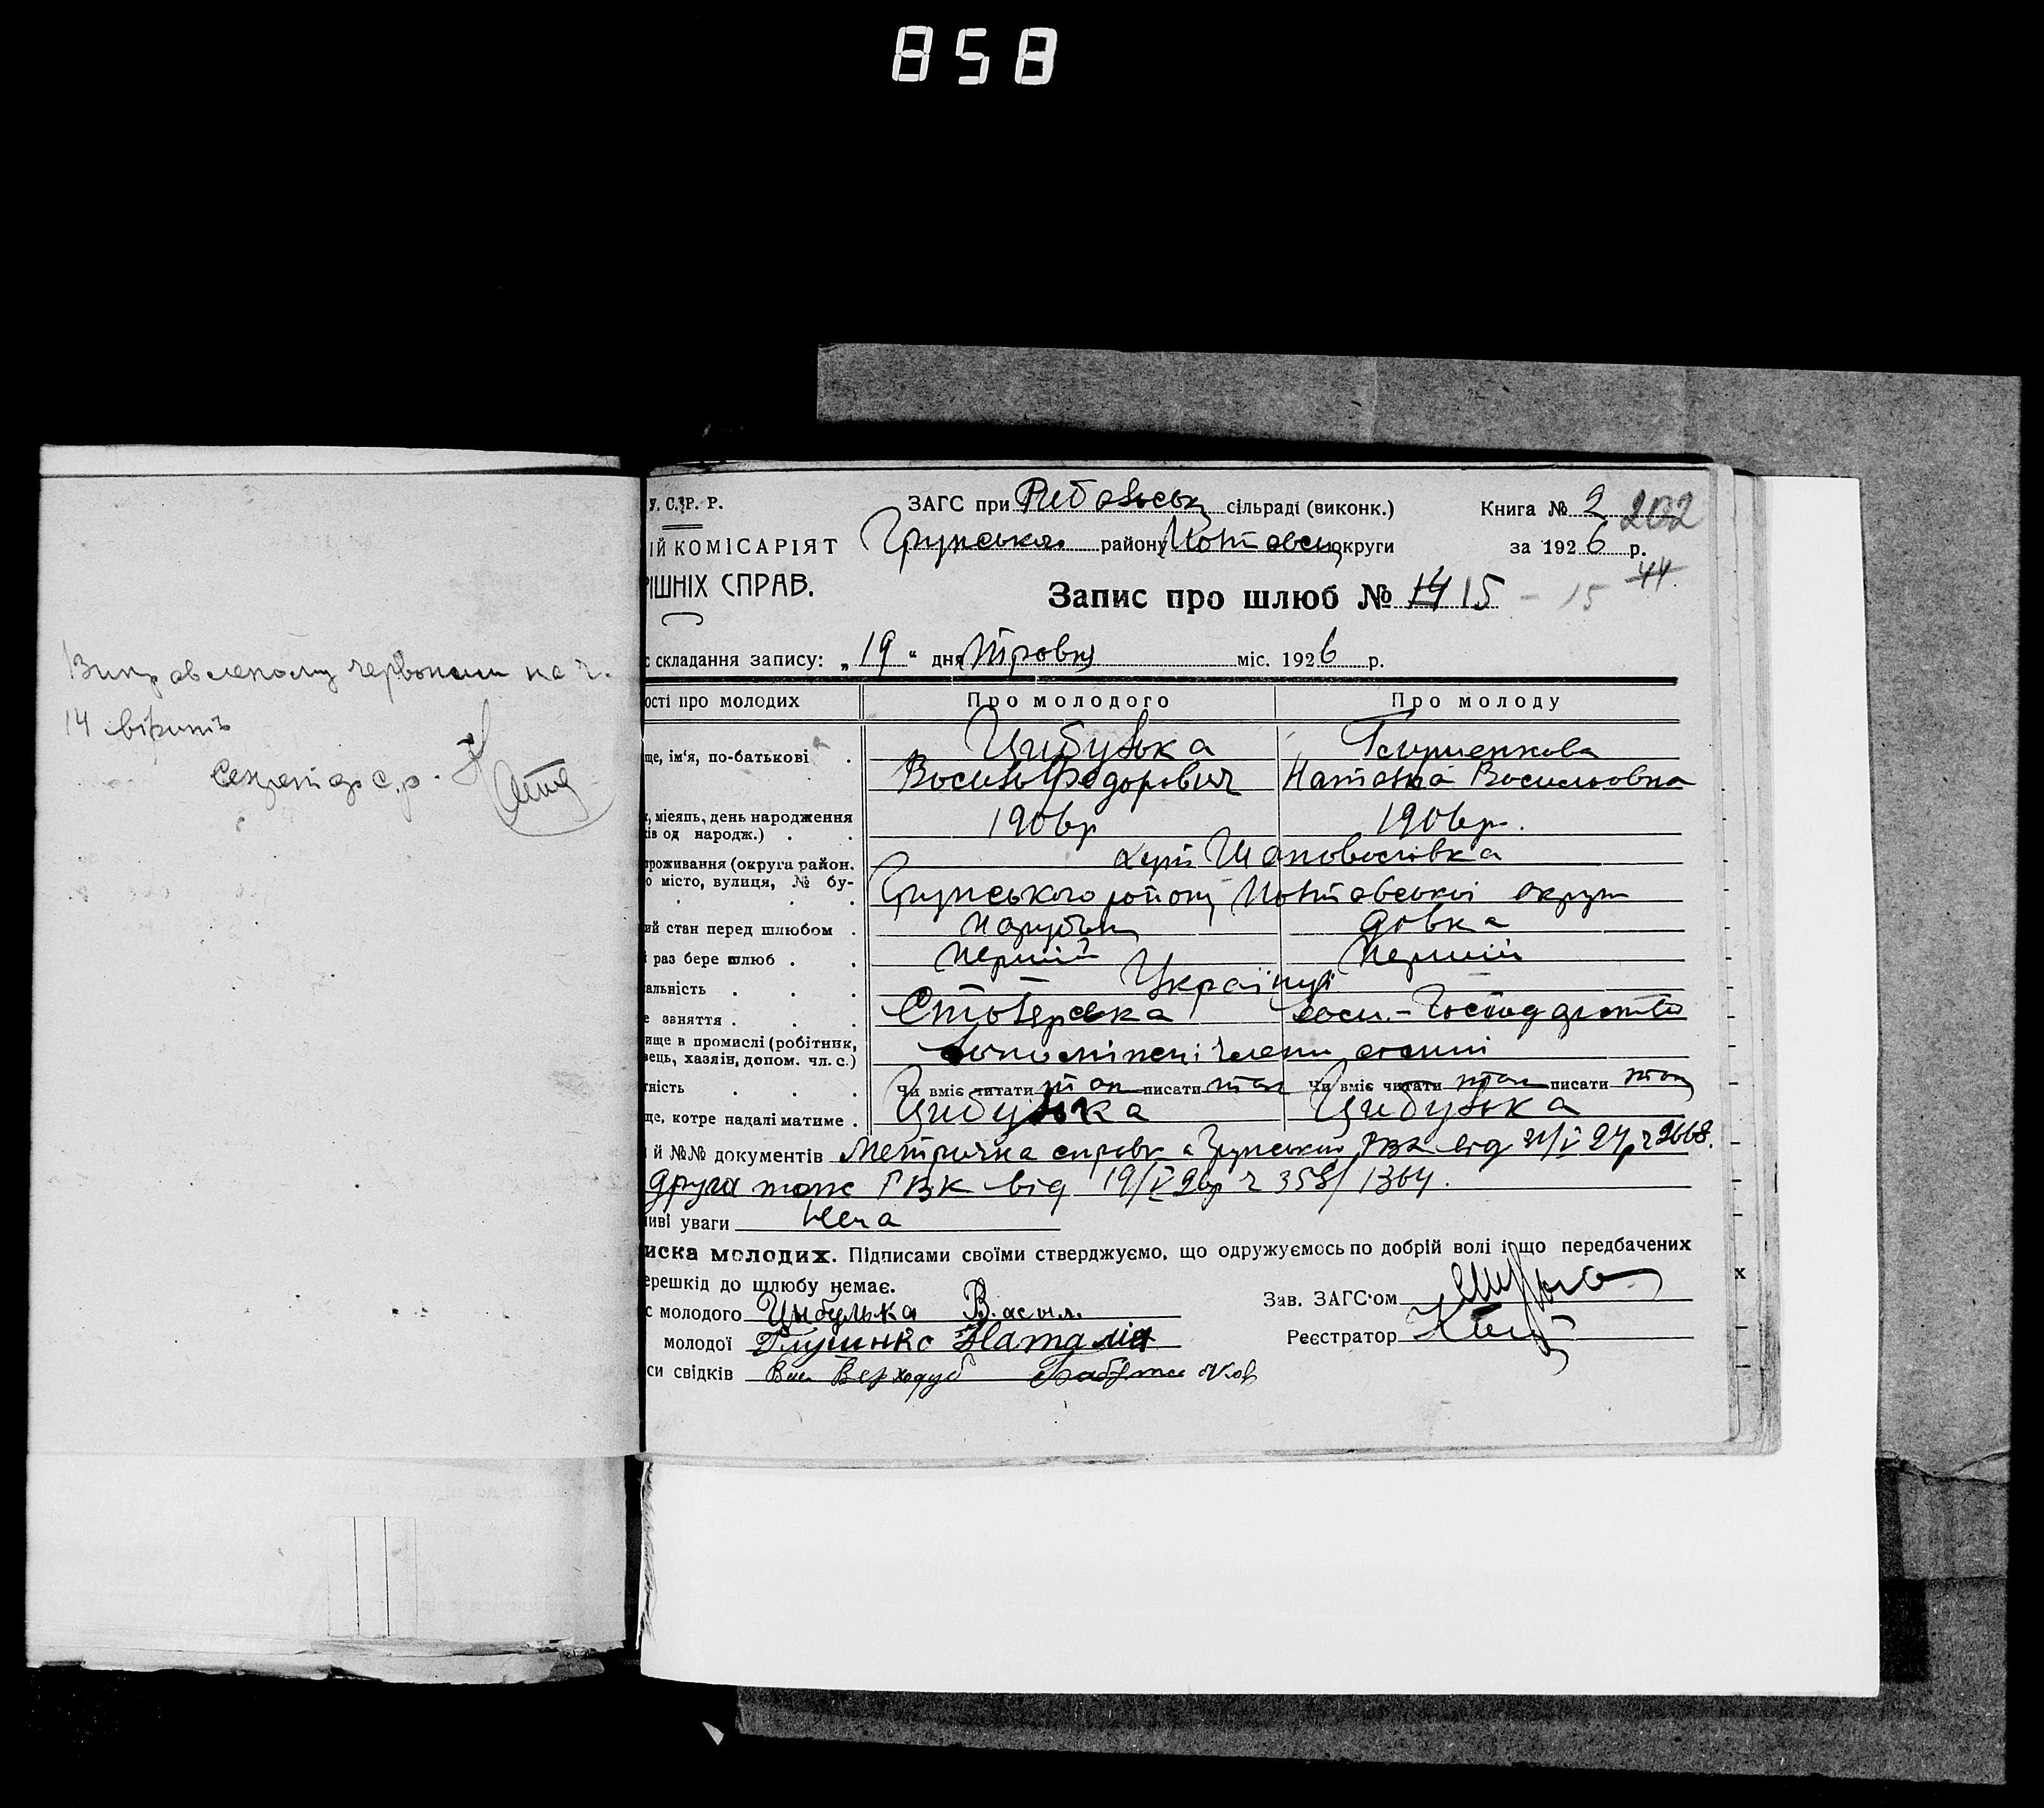 858
Виправленому червоним на ч.
14 вірить
Секретар с.р.
У. С. Р. Р.
ІЙ КОМІСАРІЯТ
РІШНІХ СПРАВ.
ЗАГС при сільраді (виконк.)
Грунського району Полтавськ округи
Книга № 2 202
за 1926 р.
44
Запис про шлюб № 14 15 - 15
с складання запису: „19“ дня Травня міс. 1926 р.
ості про молодих Про молодого Про молоду
ще, ім'я, по-батькові . Цибулька
Василь Федорович Наталка Василовна
, місяць, день народження
ків од народж.) . . 1906р 1906р.
проживання (округа район.
о місто, вулиця, № бу- хут
. . . Грунського району Полтавської округи
ий стан перед шлюбом . парубок дівка
раз бере шлюб . . перший перший
альність . . . Українці
е заняття . . . Столярська сільс.-Господарство
ище в промислі (робітник,
вець, хазяін, допом. чл. с.) члени сем'ї
тність . . . Чи вміє читати так писати так Чи вміє читати так писати так
ще, котре надалі матиме . Цибулька Цибулька
й №№ документів Метрична справка Грунський РВК від 31/V 24р ч 2668.
друга тоже РВК від 19/V 26р ч 358/1364.
ливі уваги Нема
иска молодих. Підписами своїми стверджуємо, що одружуємось по добрій волі і що передбачених
ерешкід до шлюбу немає.
с молодого Цыбулька Васыл.
Зав. ЗАГС'ом
молодої Глушенко Наталія
Реєстратор
си свідків Вас Верходуб
х